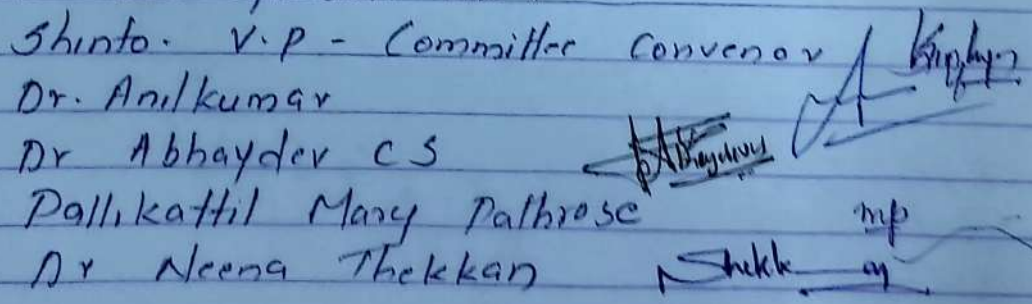 Shinto. V.P - Committee Convenor
Dr. Anilkumar
Dr Abhaydev C S
Pallikattil Mary Pathrose mp
Dr Neena Thekkan